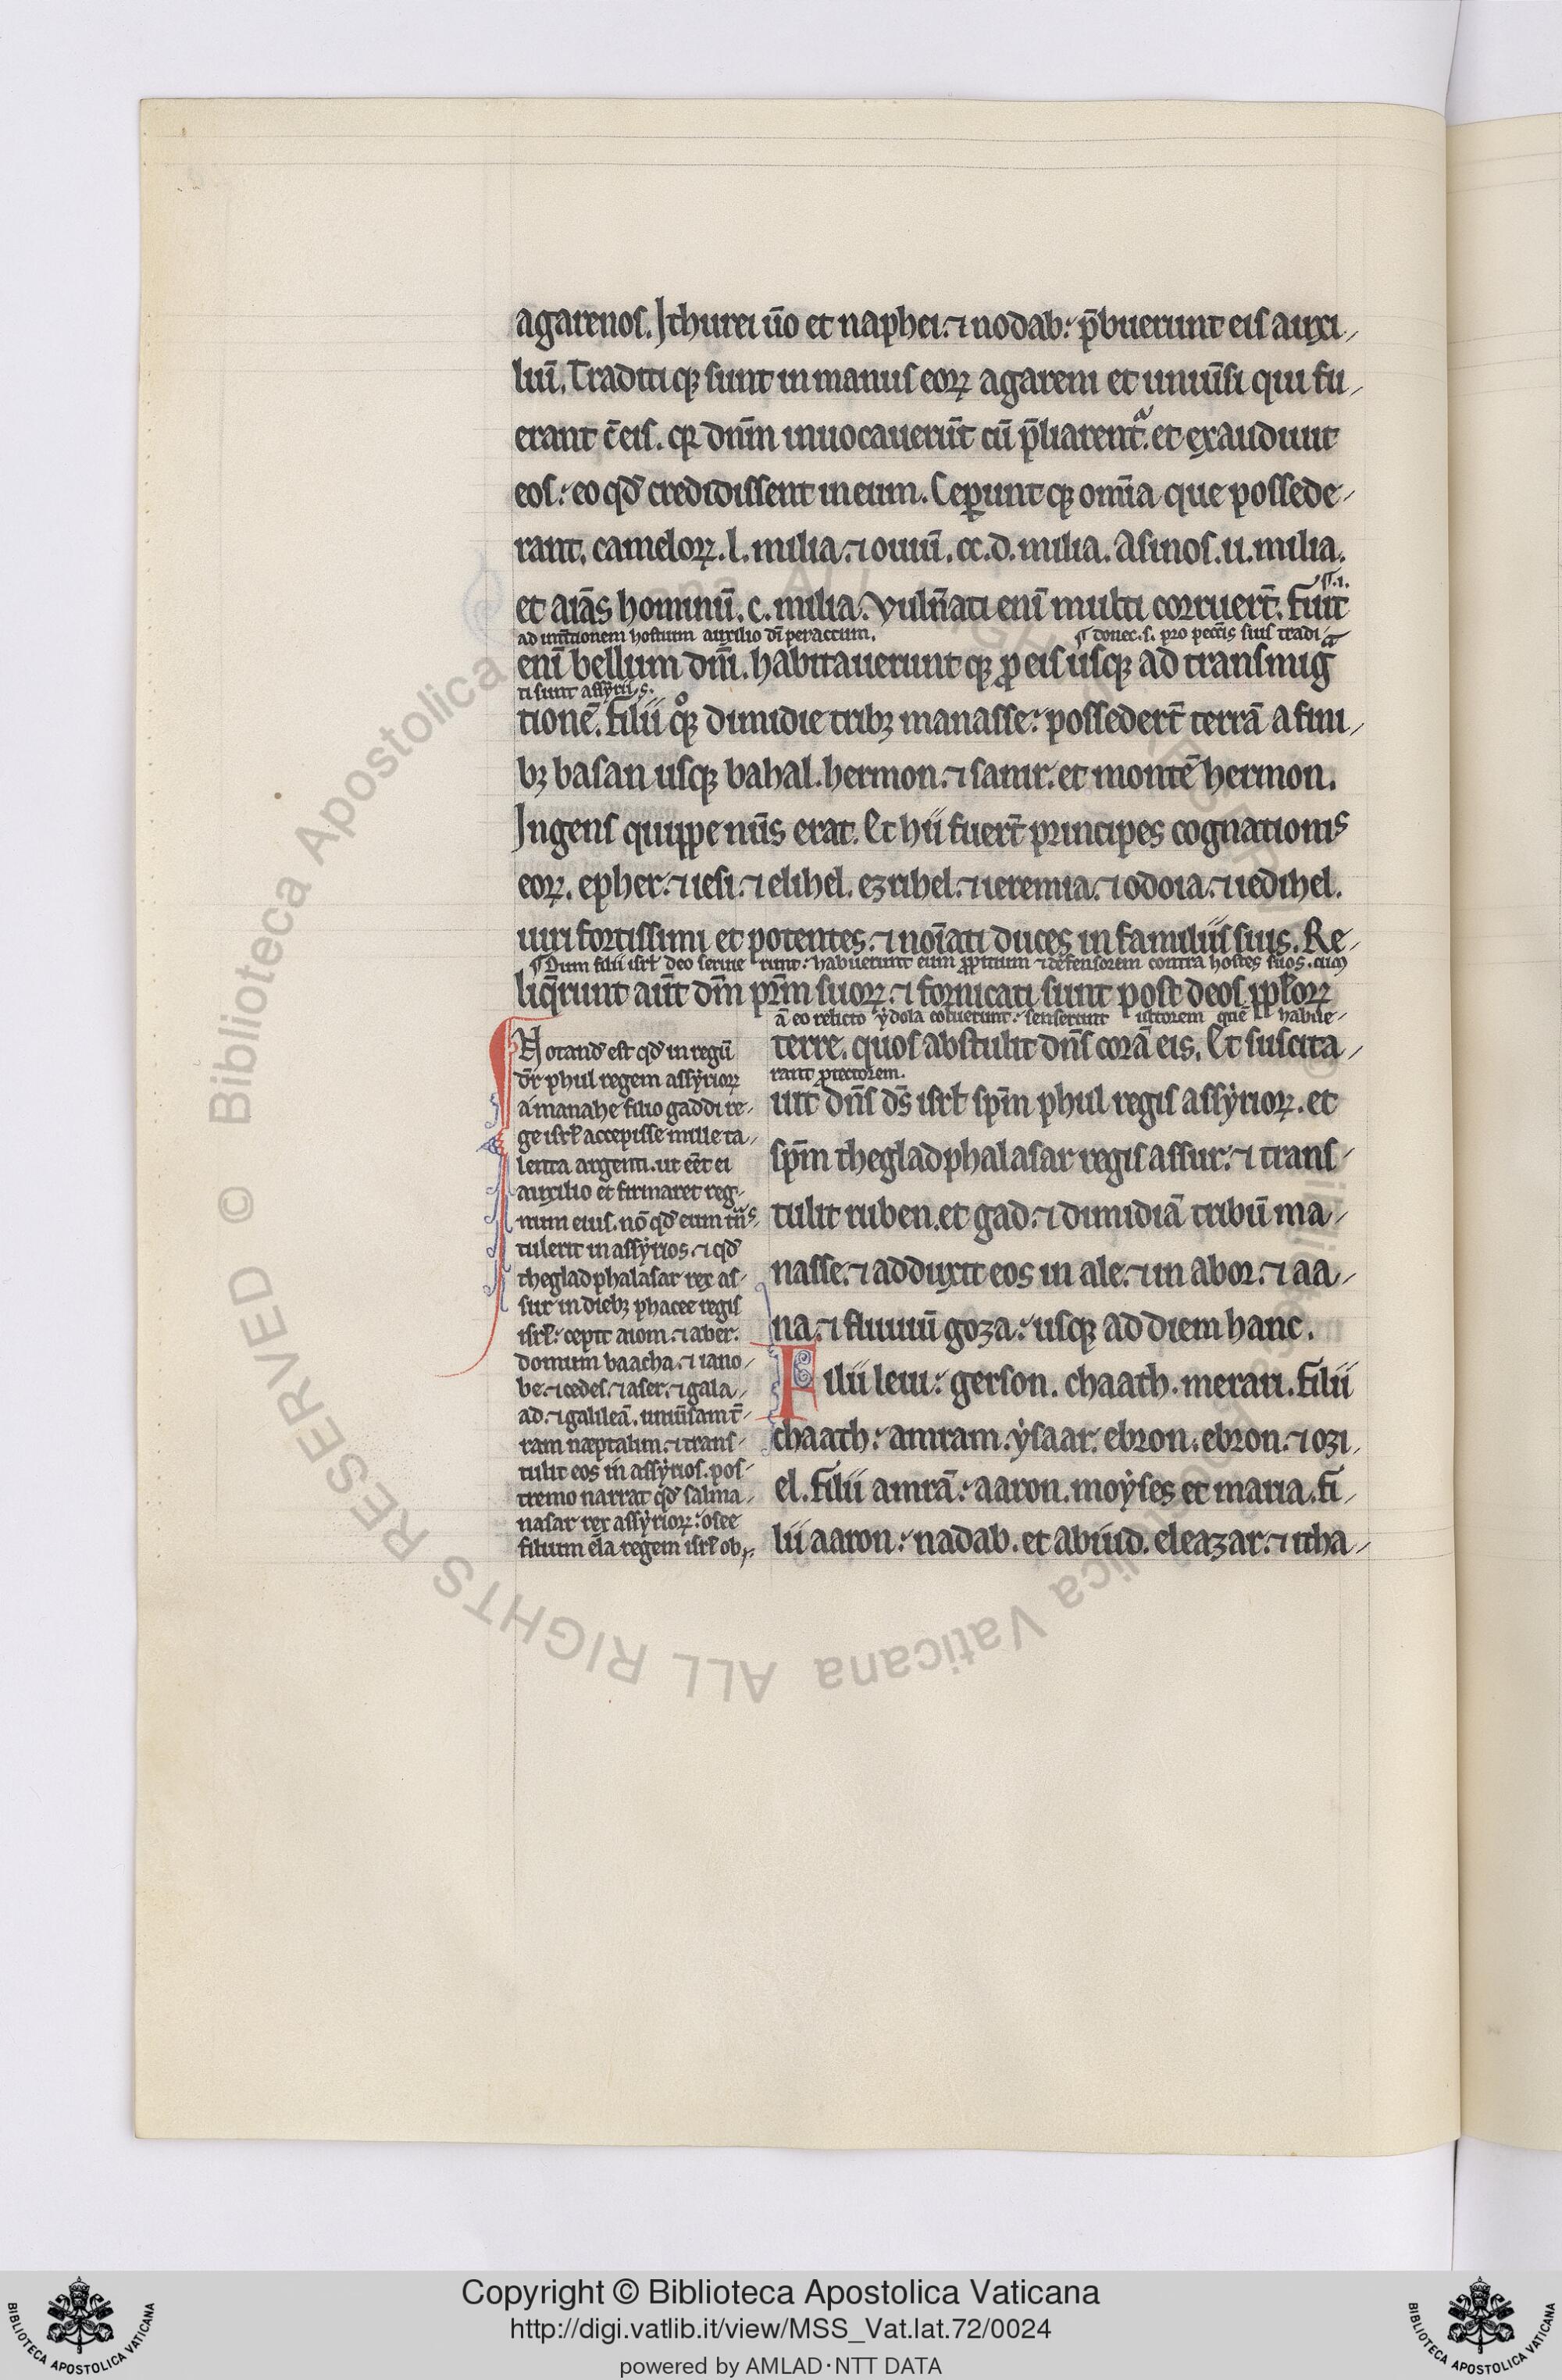 agarenos. Ithurei ũo et naphei. ⁊ nodab: p̃buerunt eis auxi-
liũ. Traditi qꝫ sunt in manus eoꝝ agareni et uniũsi qui fu-
erant c̃ eis. qꝛ dñm inuocauerũt cũ p̃liarentᷓ. et exaudiuit
eos: eo qđ credidissent in eum. Ceꝑunt qꝫ om̃ia que possede-
rant. cameloꝝ. l. milia. ⁊ ouiũ. cc. d. milia. asinos. ii. milia.
¶.i.
et aiãs hominũ. c. milia. Vulñati eni᷑ multi corruer̃t. fuit
ad uin̄tionem hostium auxilio dĩ peractum. ¶ donec. s. pro pecc̃is suis tradi-
eni᷑ bellum dñi. habitauerunt qꝫ ꝓ eis usqꝫ ad transmigᷓ
ti sunt assyriis.
tionẽ. filii qͦꝫ dimidie tribꝫ manasse: posseder̃t terrã a fini-
bꝫ basan usqꝫ bahal. hermon. ⁊ sanir. et montẽ hermon.
Ingens quippe nũs erat. Et hii fuer̃t principes cognationis
eoꝝ. epher. ⁊ iesi. ⁊ elihel. ezrihel. ⁊ ieremia. ⁊ odoia. ⁊ iedihel.
uiri fortissimi et potentes. ⁊ noĩati duces in familiis suis. Re-
¶ Dum filii isrł deo seruie runt: habuerunt eum ꝓpitium ⁊ defensorem contra hostes suos. cum
liq̃runt aũt dm̃ pr̃m suoꝝ. ⁊ fornicati sunt post deos pp̃loꝝ
ã eo relicto ydola coluerunt: senserunt ultorem quẽ habue-
terre. quos abstulit dñs corã eis. Et suscita-
rant ꝓtectorem.
uit dñs ds̃ isrł spm̃ phul regis assyrioꝝ. et
spm̃ thegladphalasar regis assur. ⁊ trans-
tulit ruben. et gad. ⁊ dimidiã tribũ ma-
nasse. ⁊ adduxit eos in ale. ⁊ in abor. ⁊ aa-
na. ⁊ fluuiũ goza: usqꝫ ad diem hanc.
Filii leui: gerson. chaath. merari. filii
chaath: amram. ysaar. ebron. ebron. ⁊ ozi-
el. filii amrã: aaron. moyses et maria. fi-
lii aaron: nadab. et abiud. eleazar. ⁊ itha-
Notand̃ est qđ in regũ
dr̃ phul regem assyrioꝝ
a manahe filio gaddi re-
ge isrł accepisse mille ta-
lenta argenti. ut eẽt ei
auxilio et firmaret reg-
num eius. nõ qđ eum trñs-
tulerit in assyrios. ⁊ qđ
thegladphalasar rex as-
sur in diebꝫ phacee regis
isrł: cepit aiom. ⁊ aber.
domum baacha. ⁊ iano-
be. ⁊ cedes. ⁊ aser. ⁊ gala-
ad. ⁊ galileã. uniũsam t̃-
ram neptalim. ⁊ trans-
tulit eos in assyrios. pos-
tremo narrat qđ salma-
nasar rex assyrioꝝ: osee
filium ela regem isrł ob-
Copyright © Biblioteca Apostolica Vaticana
http://digi.vatlib.it/view/MSS_Vat.lat.72/0024
powered by AMLAD·NTT DATA
BIBLIOTECA APOSTOLICA VATICANA
BIBLIOTECA APOSTOLICA VATICANA
© Biblioteca Apostolica Vaticana ALL RIGHTS RESERVED